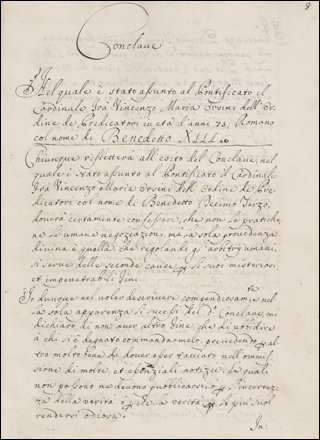 8
Conclave
Nel quale è stato assunto al Pontificato il
Cardinale Frà Vincenzo Maria Orsini dell'Or-
dine de Predicatori in età d'anni 75; Romano
col nome di Benedetto XIII
Chiunque rifletterà all'esito del Conclave, nel
quale è stato assunto al Pontificato il Cardinale
Frà Vincenzo Maria Orsini dell'Ordine de Pre
dicatori col nome di Benedetto Decimo Terzo,
dovrà certamente confessare, che non le pratiche,
ne le umane negoziazioni, ma la sola providenza
divina è quella, che regolando gl'arbitrij umani,
si serve delle seconde cause p li suoi misteriosi,
et impenetrabili fini.
Io dunque nel voler descrivere compendiosam.te nel
la sola apparenza li successi del d.o Conclave, mi
dichiaro di non aver altro fine, che di ubbidire
à chi si è degnato commandarmelo, prevedendo p al
tro molto bene da dover esser tacciato nell'ommis-
sione di molte, et essenziali notizie, le quali
non possono ne devono pubblicarsi, ò p l'incertez-
za della verità, ò p che la verità p lo più suol
rendersi odiosa.
In: